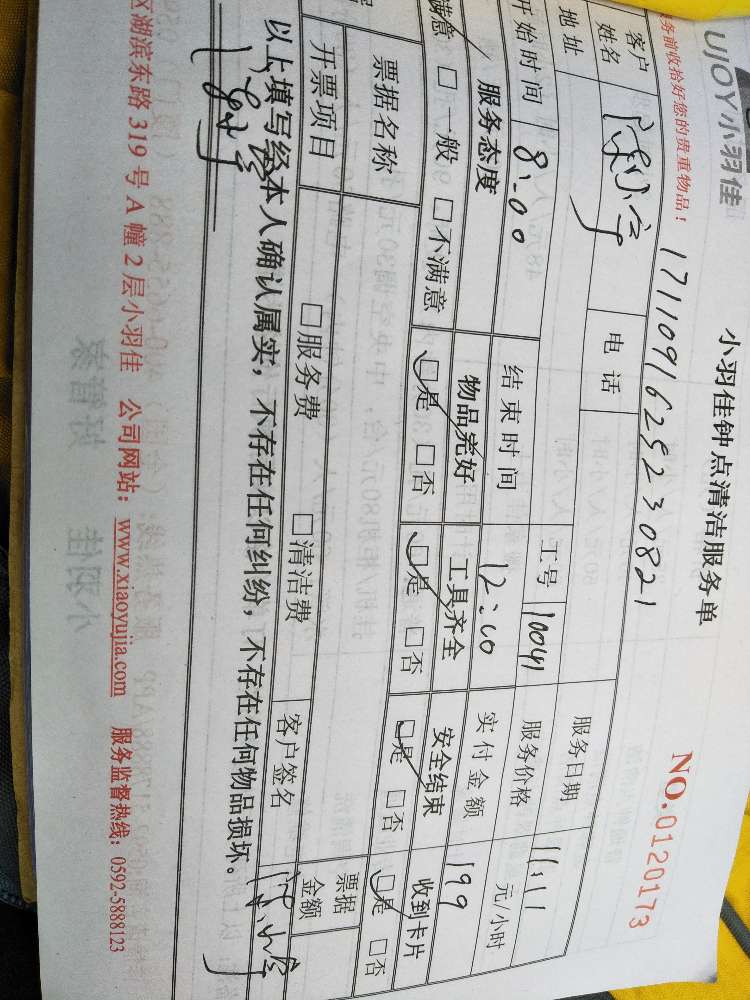 UJOY小羽佳
小羽佳钟点清洁服务单
NO.0120173
务前收拾好您的贵重物品！
1711091625230821
客户姓名
电话
服务日期 11.11
地址
工号 10041
服务价格 元/小时
开始时间 8:00
结束时间 12:00
实付金额 199
服务态度 物品完好 工具齐全 安全结束 收到卡片
满意 □一般 □不满意 □是 □否 □是 □否 □是 □否 □是 □否
票据名称
票据金额
开票项目 □服务费 □清洁费 客户签名
以上填写经本人确认属实，不存在任何纠纷，不存在任何物品损坏。
区湖滨东路 319 号 A 幢 2 层小羽佳 公司网站：www.xiaoyujia.com 服务监督热线：0592-5888123